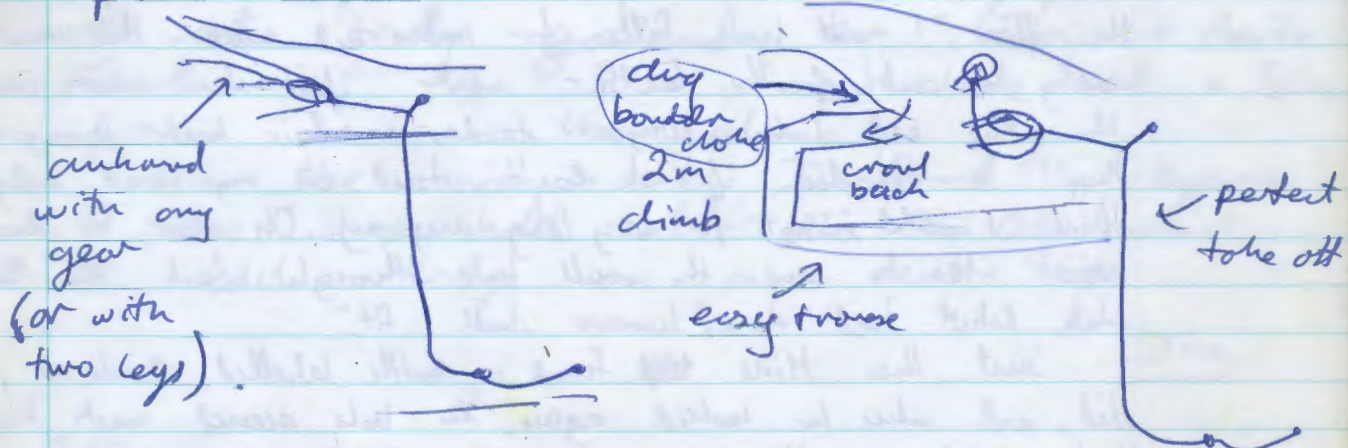 awkward
with any
gear
(or with
two legs).
dug
boulder
choke
2m
climb
crawl
back
easy traverse
perfect
take off